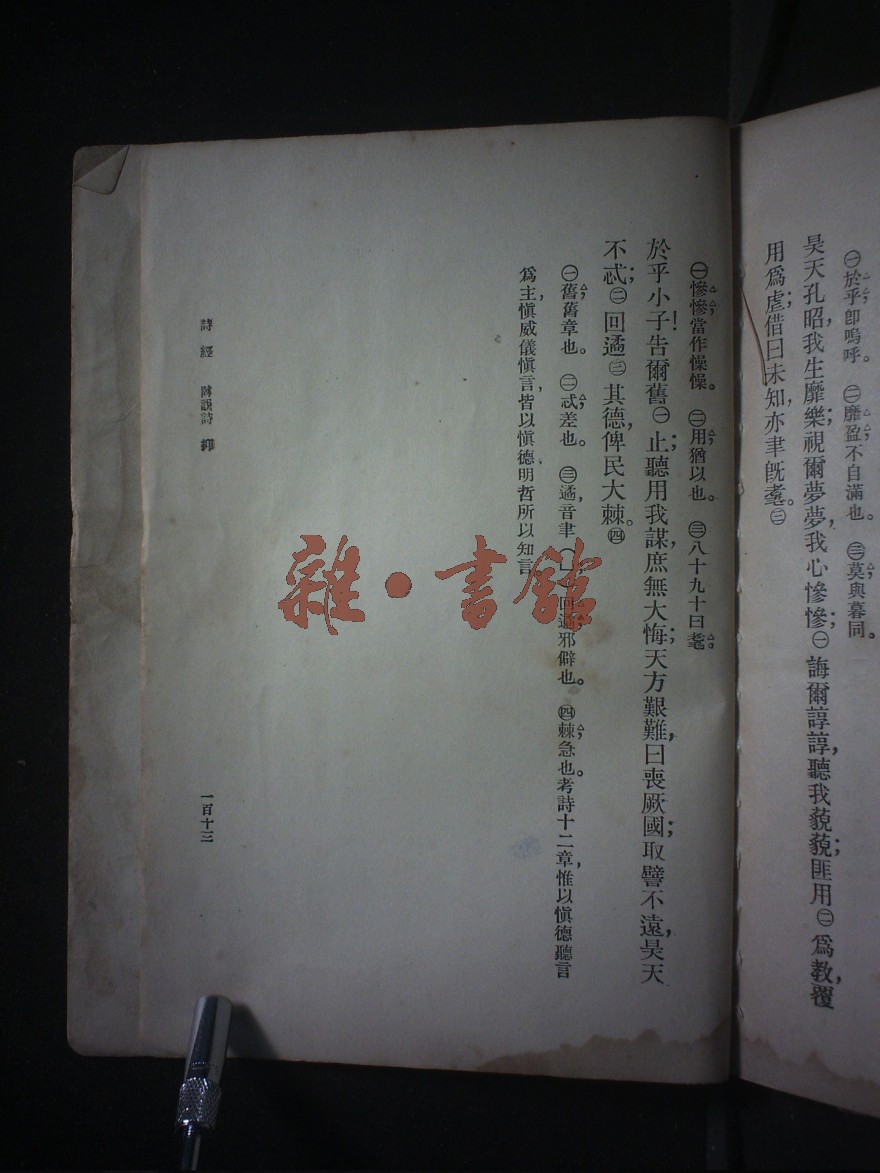 ㊀於乎，卽嗚呼。 ㊁靡盈，不自滿也。 ㊂莫，與暮同。
昊天孔昭，我生靡樂；視爾夢夢，我心慘慘；㊀ 誨爾諄諄，聽我藐藐；匪用㊁爲教，覆
用爲虐；借曰未知，亦聿旣耄。㊂
㊀慘慘；當作懆懆。 ㊁用；猶以也。 ㊂八十九十曰耄；
於乎小子！告爾舊㊀止；聽用我謀，庶無大悔；天方艱難，曰喪厥國；取譬不遠，昊天
不忒；㊁回遹㊂其德，俾民大棘。㊃
㊀舊；舊章也。 ㊁忒；差也。 ㊂遹，音聿 回遹；邪僻也。 ㊃棘；急也。考詩十二章，惟以愼德聽言
爲主，愼威儀愼言，皆以愼德，明哲所以知言
詩經 詩 抑
一百十三
雜·書館